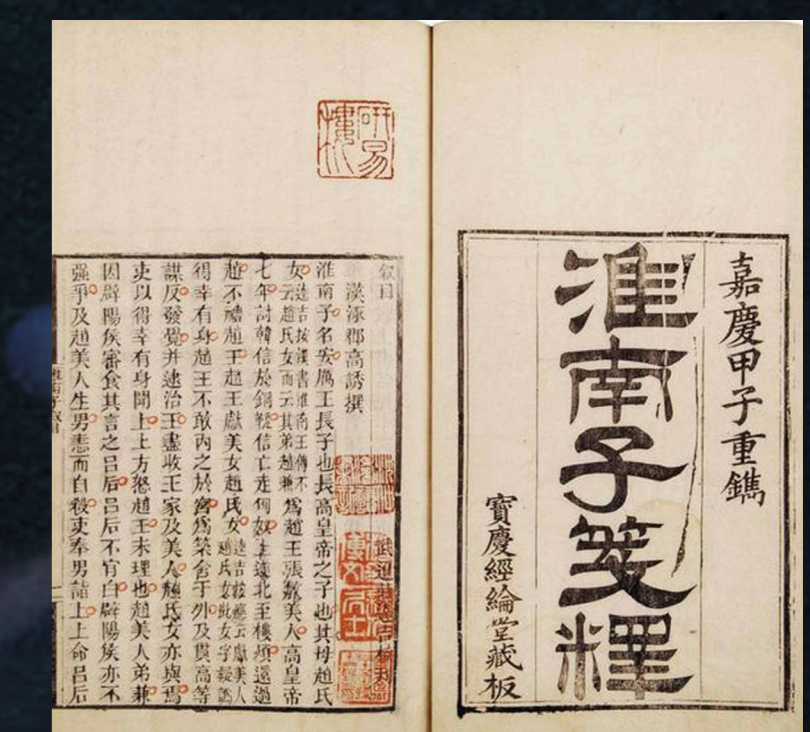 嘉慶甲子重鐫
淮南子箋釋
寶慶經綸堂藏板
叙目
漢涿郡高誘撰
淮南子名安厲王長子也長高皇帝之子也其母趙氏
女為趙王張敖美人高皇帝
七年討韓信於銅鞮信亡走匈奴上遂北至樓煩還過
趙不禮趙王趙王獻美女趙氏女
得幸有身趙王不敢內之於宮為築舍于外及貫高等
謀反發覺并逮治王盡收王家及美人趙氏女亦與焉
吏以得幸有身聞上上方怒趙王未理也趙美人弟兼
因辟陽侯審食其言之呂后呂后不肯白辟陽侯亦不
強爭及趙美人生男恚而自殺吏奉男詣上上命呂后